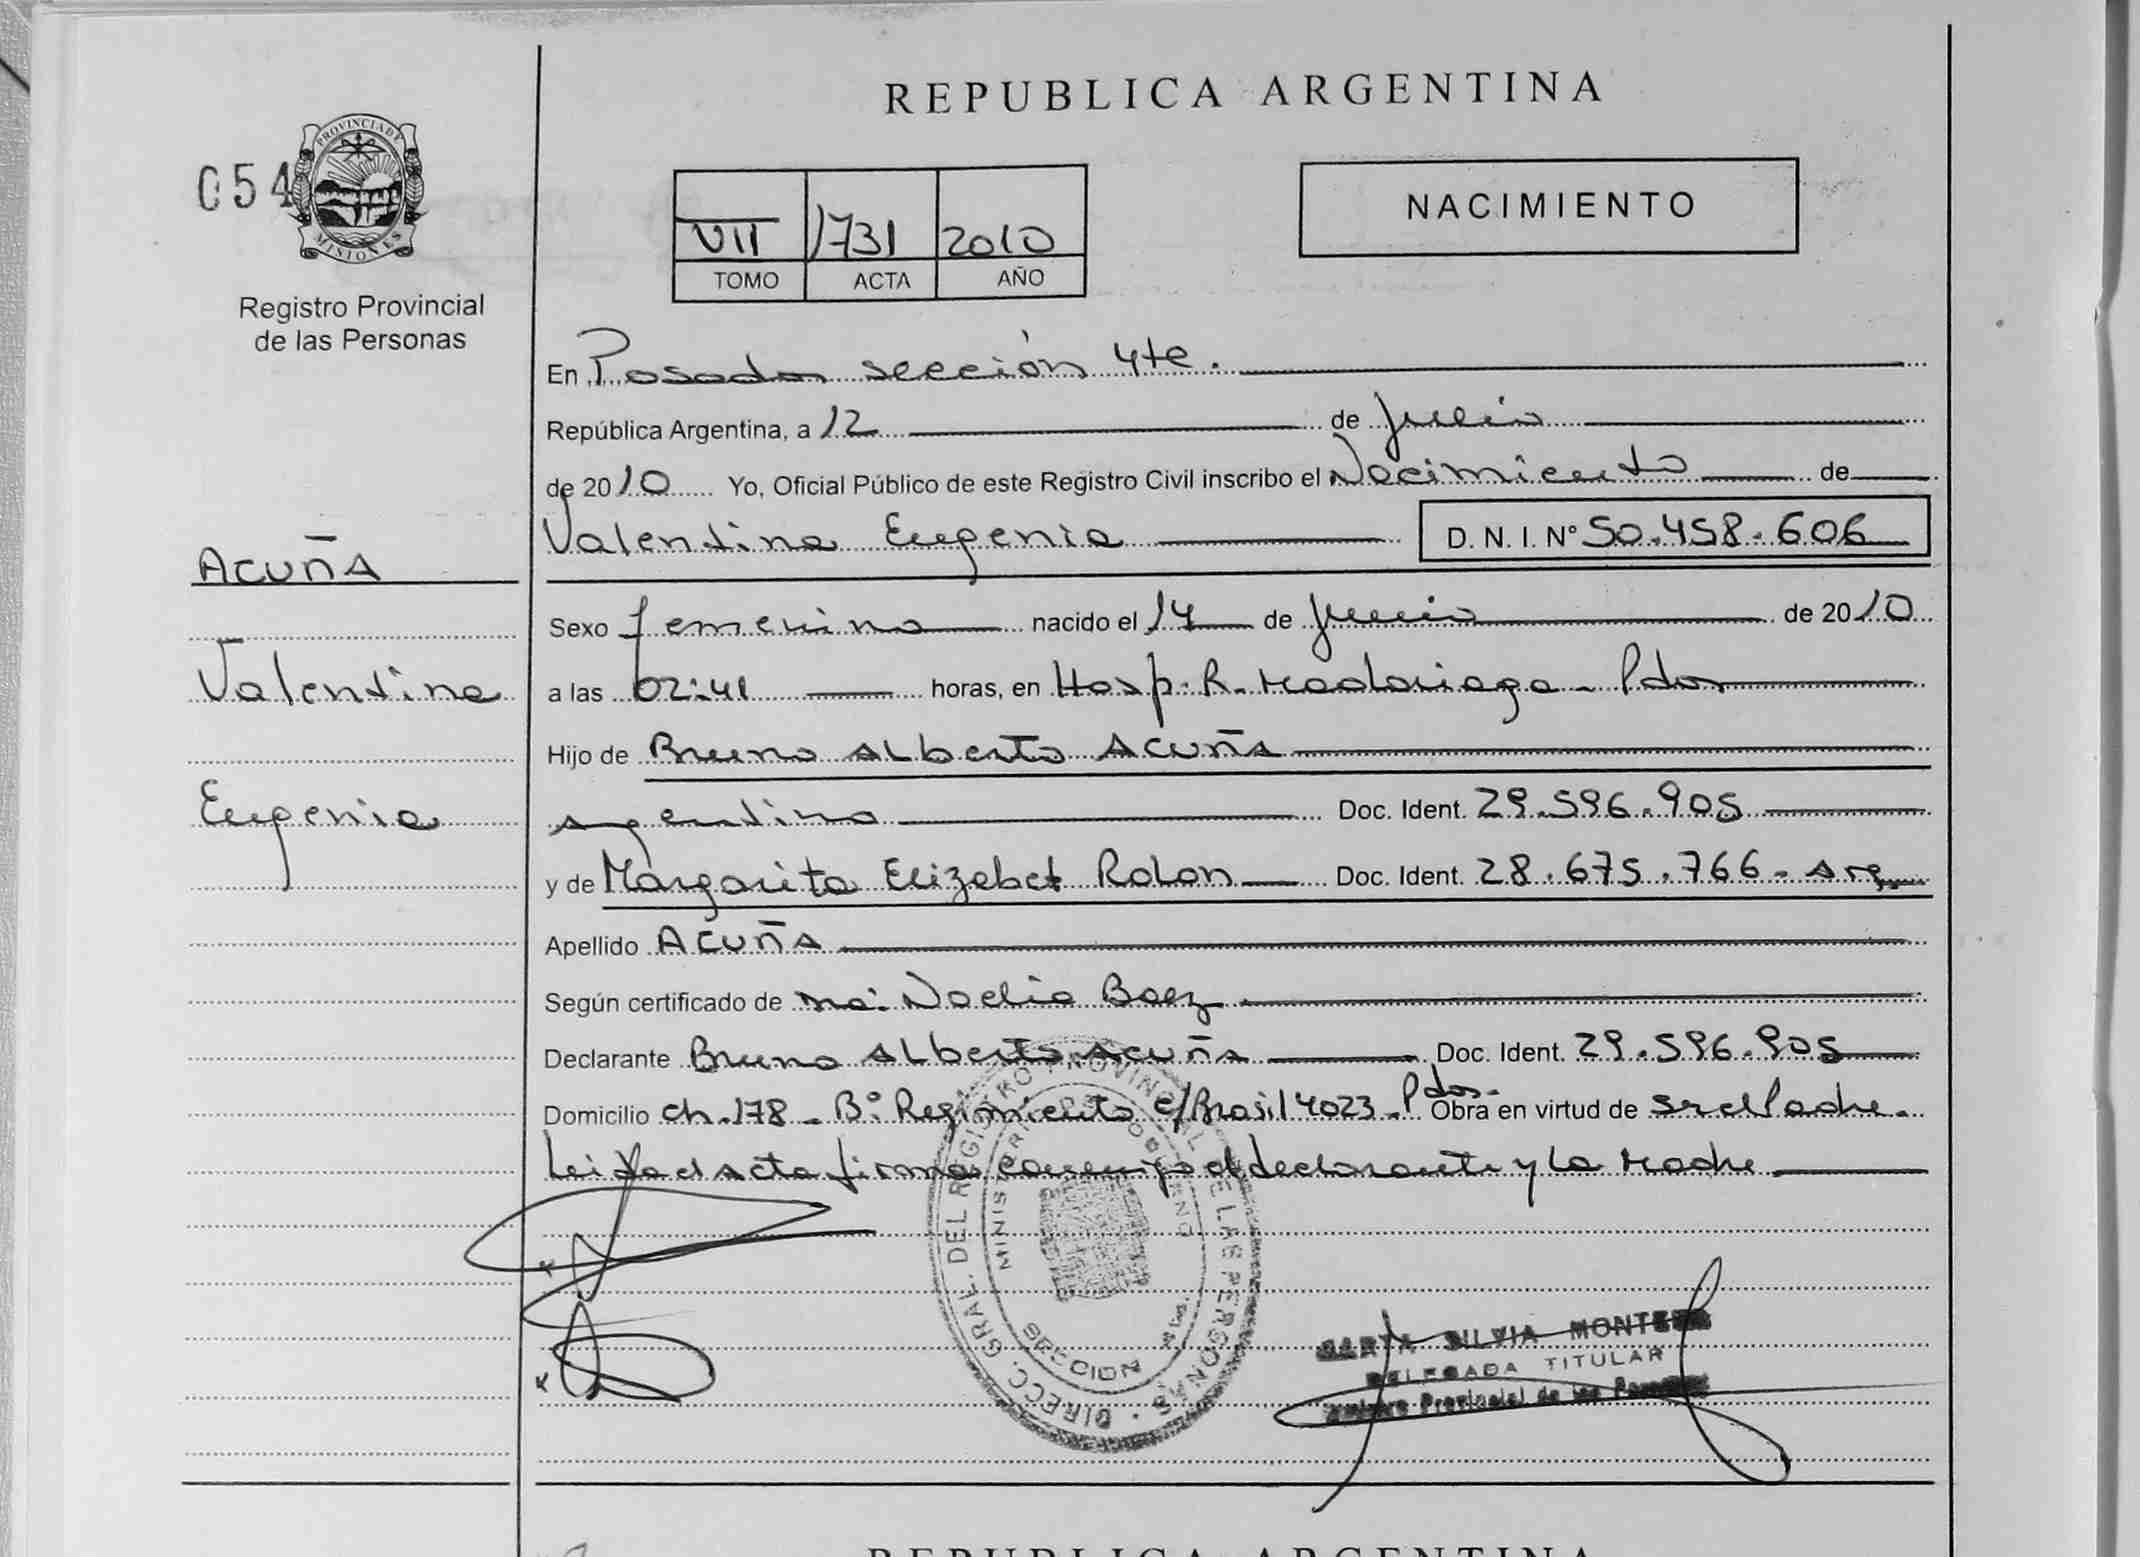 REPUBLICA ARGENTINA
054
PROVINCIA DE
MISIONES
Registro Provincial
de las Personas
VII 1731 2010
TOMO ACTA AÑO
NACIMIENTO
En Posadas sección 4te.
República Argentina, a 12 de Julio
de 2010 Yo, Oficial Público de este Registro Civil inscribo el Nacimiento de
Valentina Eugenia D. N. I. N° 50.458.606
ACUÑA
Valentina
Eugenia
Sexo femenino nacido el 14 de Junio de 2010
a las 02:41 horas, en Hosp. R. Madariaga - Pdas
Hijo de Bruno Alberto Acuña
argentino Doc. Ident. 29.596.905
y de Margarita Elizabet Rolon Doc. Ident. 28.675.766 - Arg.
Apellido ACUÑA
Según certificado de Ma: Noelia Baez
Declarante Bruno Alberto Acuña Doc. Ident. 29.596.905
Domicilio Ch. 178 - B° Regimiento c/Brasil 4023 - Pdas. Obra en virtud de ser el Padre.
Leida el Acta firman conmigo el declarante y la Madre
DIRECC. GRAL. DEL REGISTRO PROVINCIAL DE LAS PERSONAS
SECCION 4ta.
SILVIA MONTE
DELEGADA TITULAR
Provincial de las
REPUBLICA ARGENTINA